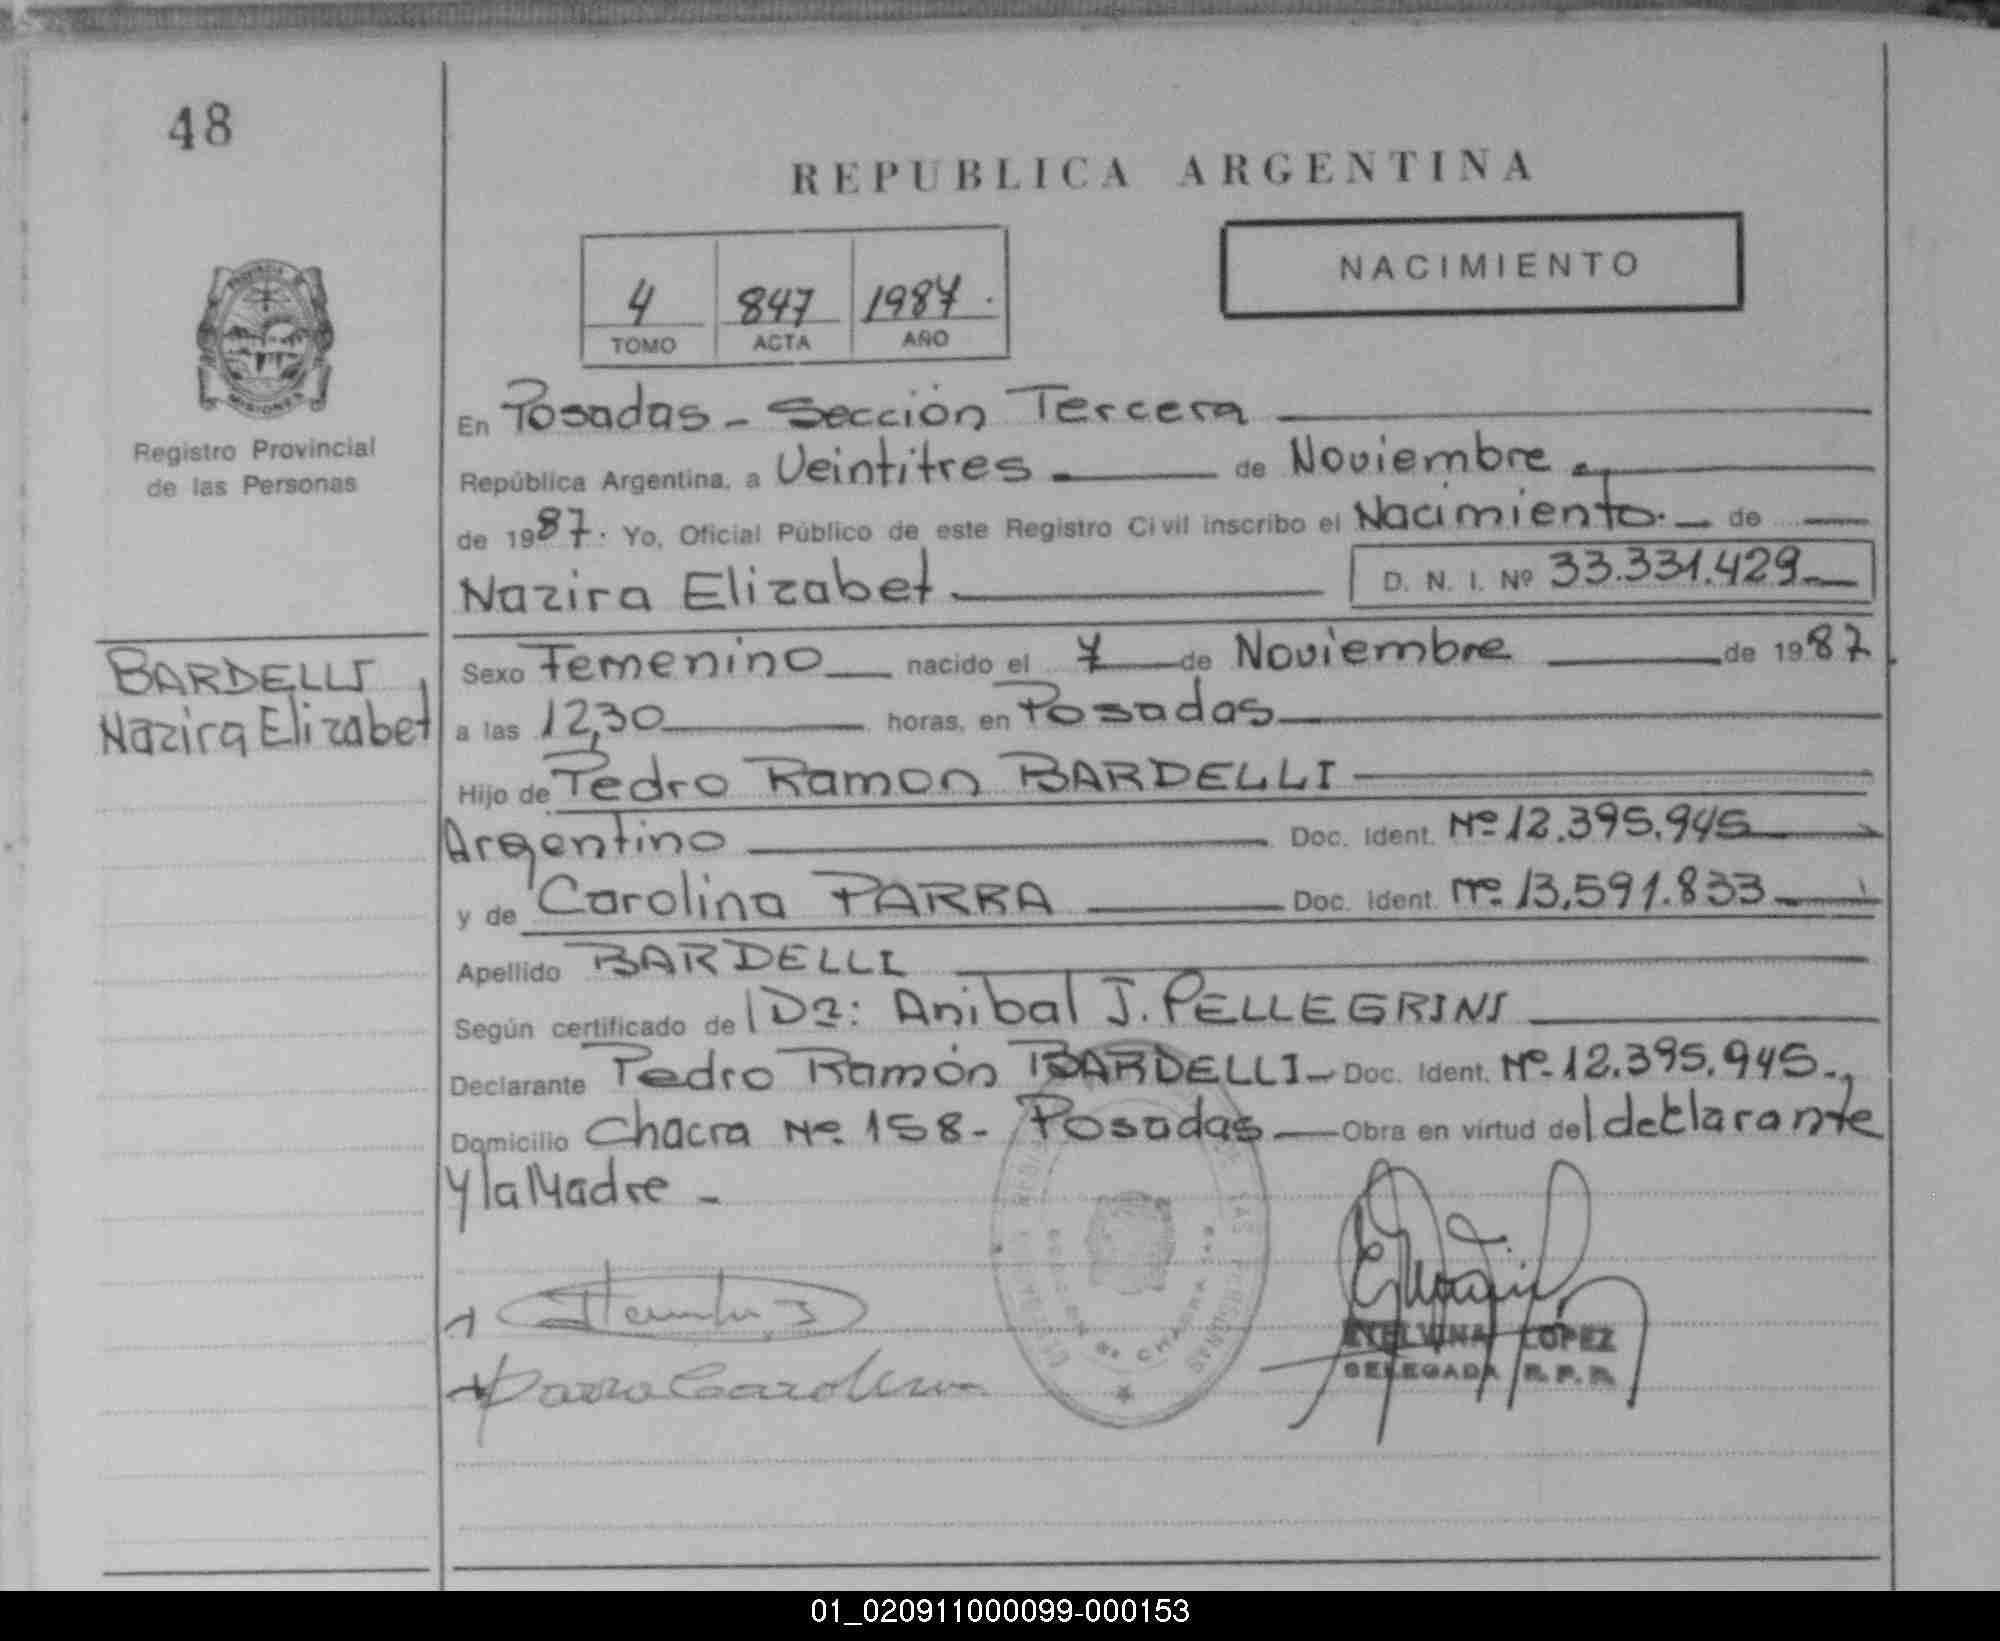 48
REPUBLICA ARGENTINA
NACIMIENTO
4 847 1987.
TOMO ACTA AÑO
MISIONES
Registro Provincial
de las Personas
En Posadas - Sección Tercera
República Argentina, a Veintitres de Noviembre
de 1987. Yo, Oficial Público de este Registro Civil inscribo el Nacimiento. de
Nazira Elizabet D. N. I. Nº 33.331.429
BARDELLI,
Nazira Elizabet
Sexo Femenino nacido el 7 de Noviembre de 1987
a las 12,30 horas, en Posadas
Hijo de Pedro Ramon BARDELLI
Argentino Doc. Ident. Nº 12.395.945
y de Carolina PARRA Doc. Ident. Nº 13.591.833
Apellido BARDELLI
Según certificado del Dr: Anibal J. PELLEGRINI
Declarante Pedro Ramón BARDELLI Doc. Ident. Nº 12.395.945.
Domicilio Chacra Nº 158 - Posadas Obra en virtud del declarante
y la Madre -
Parra Carolina
ETELVINA LOPEZ
DELEGADA R. P. P.
01_020911000099-000153